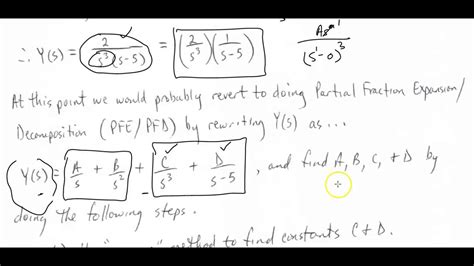 ∴ Y(s) = 2/(s³(s-5)) = (2/s³)(1/(s-5))
At this point we would probably revert to doing Partial Fraction Expansion/
Decomposition (PFE/PFD) by rewriting Y(s) as ...
Y(s) = A/s + B/s² + C/s³ + D/(s-5) , and find A, B, C, + D by
doing the following steps.
method to find constants C + D.